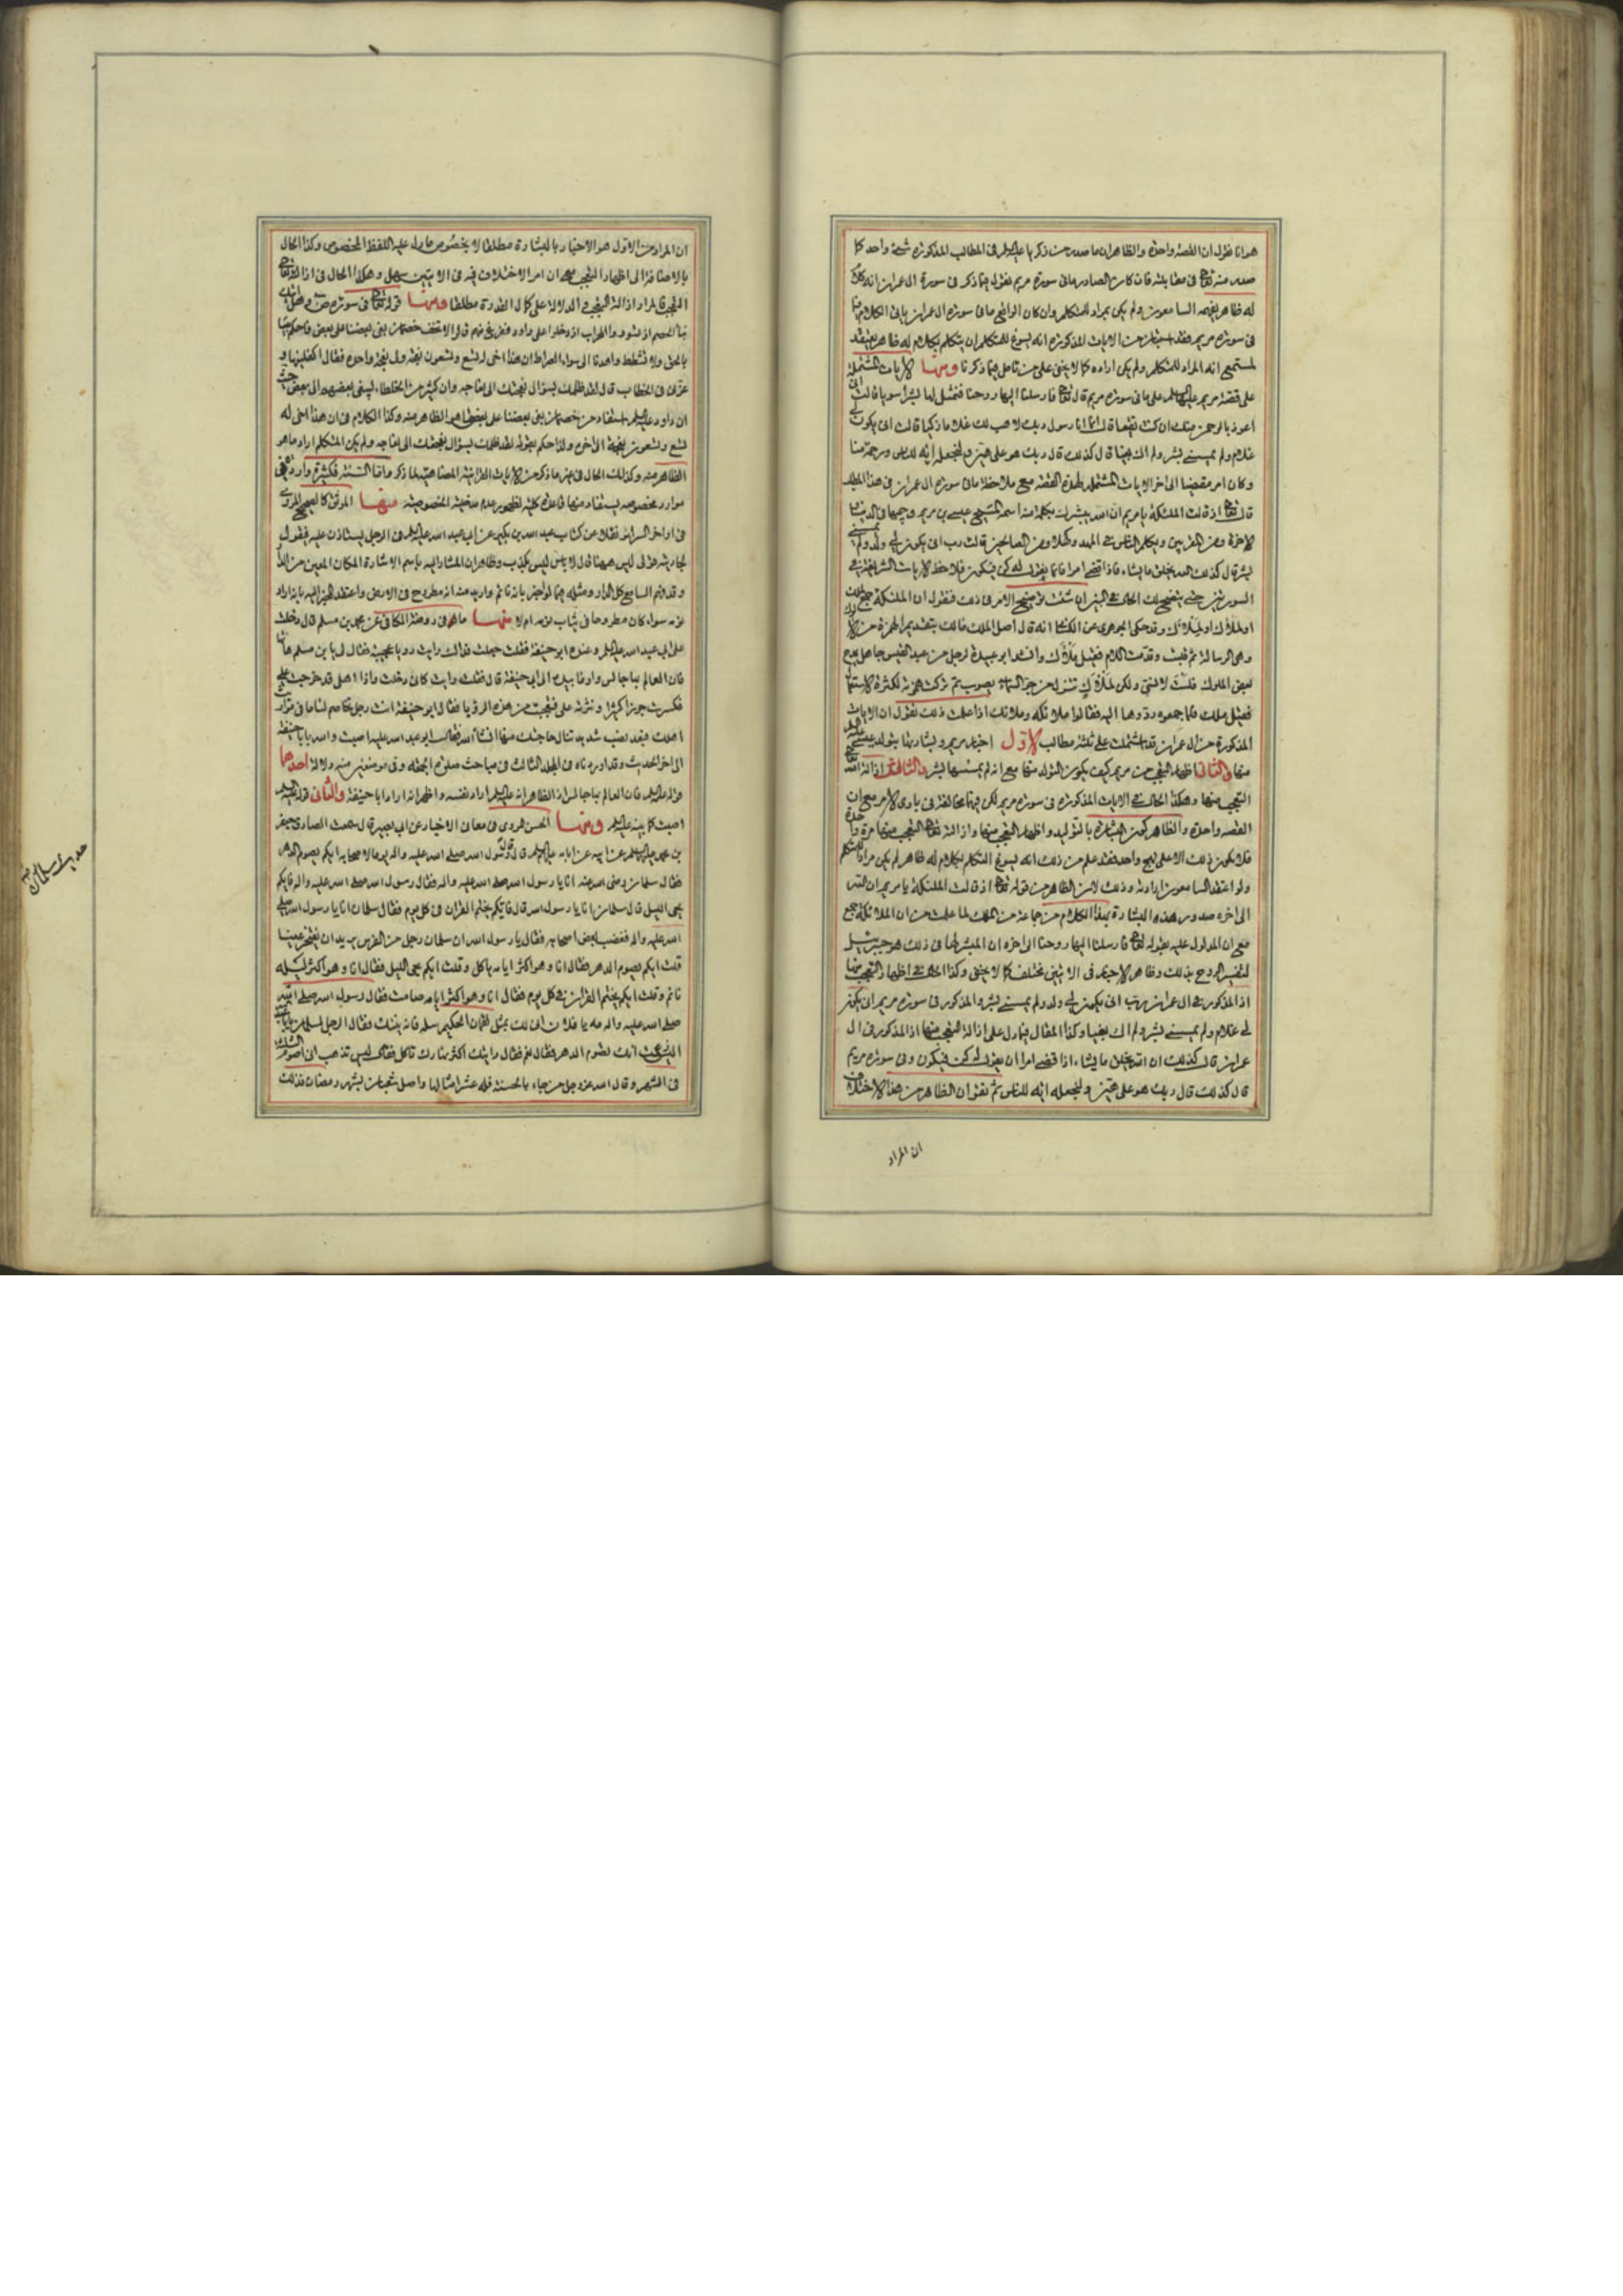 هو انا نقول ان القصة واحدة والظاهر ان ما صدر من زكريا عليه السلم في المطالب المذكورة شيء واحد كما
صدر منه تعالى في مقابلته فان كان الصادر ما في سورة مريم نقول فيما ذكر في سورة ال عمران انه كلام
له ظاهر يفهمه السامعون ولم يكن مراد المتكلم وان كان الواقع ما في سورة ال عمران ياتي الكلام
في سورة مريم فقد استبان من الايات المذكورة انه يسوغ للمتكلم ان يتكلم بكلام له ظاهر يعتقد
المستمع انه المراد للمتكلم ولم يكن اراده كما لا يخفى على من تامل فيما ذكرنا ومنها الايات المشتملة
على قصة مريم عليها السلم على ما في سورة مريم قال تعالى فارسلنا اليها روحنا فتمثل لها بشرا سويا قالت اني
اعوذ بالرحمن منك ان كنت تقيا قال انما انا رسول ربك لاهب لك غلاما زكيا قالت انى يكون لي
غلام ولم يمسسني بشر ولم اك بغيا قال كذلك قال ربك هو علي هين ولنجعله اية للناس ورحمة منا
وكان امرا مقضيا الى اخر الايات المشتملة لهذه القصة مع ملاحظة ما في سورة ال عمران في هذا المطلب
قال تعالى اذ قالت الملئكة يا مريم ان الله يبشرك بكلمة منه اسمه المسيح عيسى بن مريم وجيها في الدنيا
والاخرة ومن المقربين ويكلم الناس في المهد وكهلا ومن الصالحين قالت رب انى يكون لي ولد ولم يمسسني
بشر قال كذلك الله يخلق ما يشاء فاذا قضى امرا فانما يقول له كن فيكون فلاحظ الايات الشريفة في
السورتين حتى يتضح لك الحال في البين ان شئت توضيح الامر في ذلك فنقول ان الملئكة جمع ملك
او ملاك وقد حكى الجوهري عن الكسائي انه قال اصل الملك مالك بتقديم الهمزة من الالوك
وهي الرسالة ثم قلبت وقدمت اللام فقيل ملاك وانشد ابو عبيدة لرجل من عبد القيس جاهلي يمدح
بعض الملوك فلست لانسي ولكن لملاك تنزل من جو السماء يصوب ثم تركت همزته لكثرة الاستعمال
فقيل ملك فلما جمعوه ردوها اليه فقالوا ملائكة وملائك اذا علمت ذلك نقول ان الايات
المذكورة من ال عمران قد اشتملت على ثلثة مطالب الاول اخبار مريم وبشارتها بتولد عيسى
منها والثاني اظهار التعجب من مريم كيف يكون التولد منها مع انه لم يمسسها بشر والثالث ازالة الله تعالى
التعجب منها وهكذا الحال في الايات المذكورة في سورة مريم لكن فيهما مخالفة في بادي الامر مع ان
القصة واحدة والظاهر كون البشارة بالتوليد واظهار التعجب منها وازالته تعالى التعجب منها مرة واحدة
فلا يكون ذلك الا على نهج واحد فقد علم من ذلك انه يسوغ التكلم بكلام له ظاهر لم يكن مراد المتكلم
ولو اعتقد السامعون ارادته وذلك لان الظاهر من قوله تعالى اذ قالت الملئكة يا مريم ان الله
الى اخره صدور هذه البشارة بهذا الكلام من جماعة من الملك لما علمت من ان الملائكة جمع
مع ان المدلول عليه بقوله تعالى فارسلنا اليها روحنا الى اخره ان المبشر لها في ذلك هو جبرئيل
لتفسير الروح بذلك وظاهر الاخبار في الايتين مختلف كما لا يخفى وكذا الحال في اظهار التعجب منها
اذ المذكور في ال عمران رب انى يكون لي ولد ولم يمسسني بشر والمذكور في سورة مريم انى يكون
لي غلام ولم يمسسني بشر ولم اك بغيا وكذا المقال فيما دل على ازالة التعجب منها اذ المذكور في ال
عمران قال كذلك الله يخلق ما يشاء اذا قضى امرا ان يقول له كن فيكون وفي سورة مريم
قال كذلك قال ربك هو علي هين ولنجعله اية للناس ثم نقول ان الظاهر من هذا الاختلاف
ان المراد
ان المراد من الاول هو الاخبار بالبشارة مطلقا لا بخصوص ما دل عليه اللفظ المخصوص وكذا الحال
بالاضافة الى اظهار التعجب مع ان امر الاختلاف فيه في الايتين سهل وهكذا الحال في ازالته تعالى
التعجب فالمراد ازالة التعجب والدلالة على كمال القدرة مطلقا ومنها قوله تعالى في سورة ص وهل اتيك
نبا الخصم اذ تسوروا المحراب اذ دخلوا على داود ففزع منهم قالوا لا تخف خصمان بغى بعضنا على بعض فاحكم بيننا
بالحق ولا تشطط واهدنا الى سواء الصراط ان هذا اخي له تسع وتسعون نعجة ولي نعجة واحدة فقال اكفلنيها و
عزني في الخطاب قال لقد ظلمك بسؤال نعجتك الى نعاجه وان كثيرا من الخلطاء ليبغي بعضهم الى بعض حيث
ان داود عليه السلم استفاد من خصمان بغى بعضنا على بعض ما هو الظاهر منه وكذا الكلام في ان هذا اخي له
تسع وتسعون نعجة الى اخره ولذا حكم بقوله لقد ظلمك بسؤال نعجتك الى نعاجه ولم يكن المتكلم اراد ما هو
الظاهر منه وكذلك الحال في غير ما ذكر من الايات القرانية المضاهية لما ذكر واما السنة فكثيرة واردة في
موارد مخصوصة يستفاد منها قاعدة كلية لظهور عدم مدخلية الخصوصية منها الموثق كالصحيح المروي
في اواخر السرائر نقلا عن كتاب عبد الله بن بكير عن ابي عبد الله عليه السلم في الرجل يستاذن عليه فيقول
لجاريته قولي ليس هيهنا قال لا باس ليس بكذب وظاهر ان المشار اليه باسم الاشارة المكان المعين من الدار
وقد فهم السامع كل الدار ومثله فيما لو اخبر بانه نائم واريد منه انه مطروح في الارض واعتقد المخبر اليه بانه اراد
نومه سواء كان مطروحا في ثياب نومه ام لا منها ما هو في روضة الكافي عن محمد بن مسلم قال دخلت
على ابي عبد الله عليه السلم وعنده ابو حنيفة فقلت جعلت فداك رايت رويا عجيبة فقال لي يابن مسلم هاتها
فان العالم بها جالس واومأ بيده الى ابي حنيفة قال فقلت رايت كاني دخلت داري واذا اهلي قد خرجت علي
فكسرت جوزا كثيرا ونثرته علي فتعجبت من هذه الرؤيا فقال ابو حنيفة انت رجل تخاصم لئاما في مواريث
اهلك فبعد نصب شديد تنال حاجتك منها انشاء الله فقال ابو عبد الله عليه السلم اصبت والله يا با حنيفة
الى اخر الحديث وقد اوردناه في المجلد الثالث في مباحث صلوة الجمعة وفي موضعين منه دلالة احدهما
قوله عليه السلم فان العالم بها جالس اذ الظاهر انه عليه السلم اراد نفسه واظهر انه اراد ابا حنيفة والثاني قوله عليه السلم
اصبت كما بينه عليه السلم ومنها الحسن المروي في معاني الاخبار عن ابي بصير قال سمعت الصادق جعفر
بن محمد عليه السلم يحدث عن ابيه عن ابائه عليهم السلم قال قال رسول الله صلى الله عليه واله يوما لاصحابه ايكم يصوم الدهر
فقال سلمان رضي الله عنه انا يا رسول الله صلى الله عليه واله فقال رسول الله صلى الله عليه واله فايكم
يحيي الليل قال سلمان انا يا رسول الله قال فايكم يختم القران في كل يوم فقال سلمان انا يا رسول الله صلى
الله عليه واله فغضب بعض اصحابه فقال يا رسول الله ان سلمان رجل من الفرس يريد ان يفتخر علينا
قلت ايكم يصوم الدهر فقال انا وهو اكثر ايامه ياكل وقلت ايكم يحيي الليل فقال انا وهو اكثر ليله
نائم وقلت ايكم يختم القران في كل يوم فقال انا وهو اكثر ايامه صامت فقال رسول الله صلى الله
صلى الله عليه واله مه يا فلان انى لك بمثل لقمان الحكيم سله فانه ينبئك فقال الرجل لسلمان يا با عبد الله
اليس زعمت انك تصوم الدهر فقال نعم فقال رايتك اكثر نهارك تاكل فقال ليس تذهب اني اصوم الثلثة
في الشهر وقال الله عز وجل من جاء بالحسنة فله عشر امثالها واصل شعبان بشهر رمضان فذلك
حديث سلمان